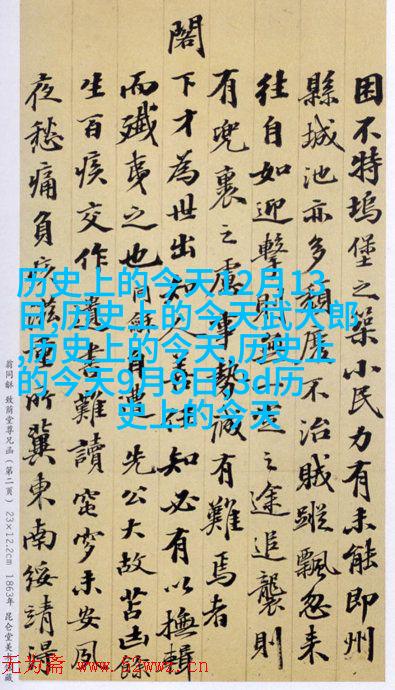 困不特塢堡之築小民力有未能即州
縣城池亦多頹廢不治賊蹤飄忽来
往自如迎擊則之途追襲則
有兕裏之虞事勢誠有難焉者
閣下才為世出知人善任知必有以撫輯
而殲夷之也同龢自遭先公大故苫凷餘
生百疾交作遺書難讀窀穸未安夙
夜愁痛負疚滋重所冀東南綏靖得
历史上的今天12月13
日,历史上的今天武大郎
,历史上的今天,历史上
的今天9月9日,3d历
史上的今天
翁同龢 致荫堂尊兄函(第二頁) 23×12.2cm 1863年 昆仑堂美术馆藏
无为斋 www.52wwz.cn